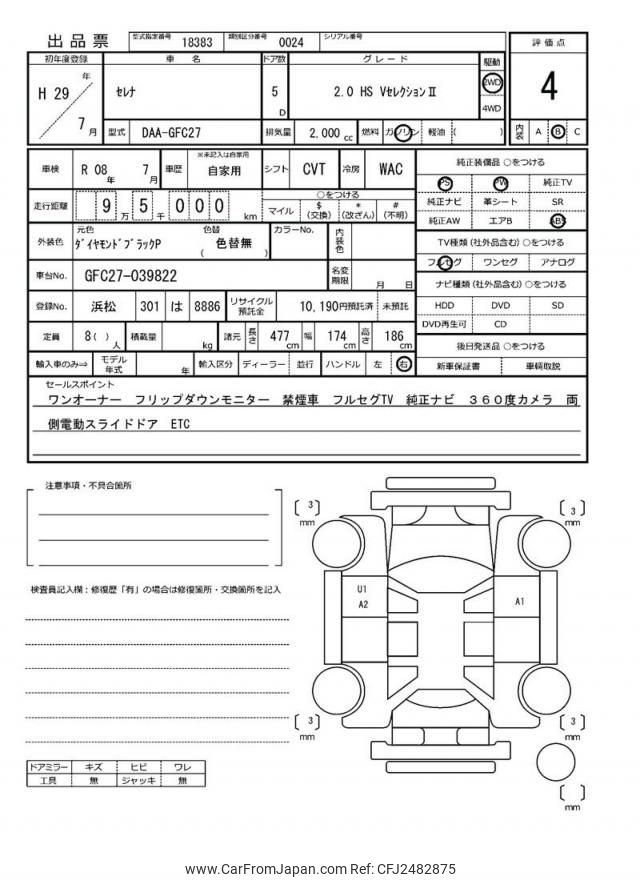 出品票 型式指定番号 18383 類別区分番号 0024 シリアル番号
初年度登録 車名 ドア数 グレード 駆動 評価点
H 29 年 7 月 セレナ 5 D 2.0 HS VセレクションⅡ 2WD 4WD 4
型式 DAA-GFC27 排気量 2,000 cc 燃料 ガソリン 軽油 ( ) 内装 A B C
車検 R 08 年 7 月 車歴 ※未記入は自家用 自家用 シフト CVT 冷房 WAC
純正装備品 ○をつける
PS PW 純正TV
純正ナビ 革シート SR
純正AW エアB ABS
走行距離 9 万 5 千 0 0 0 km
○をつける
マイル $ (交換) * (改ざん) # (不明)
外装色 元色 ダイヤモンドブラックP 色替 ( 色替無 ) カラーNo. 内装色
TV種類 (社外品含む) ○をつける
フルセグ ワンセグ アナログ
車台No. GFC27-039822 名変期限 月 日
ナビ種類 (社外品含む) ○をつける
HDD DVD SD
DVD再生可 CD
登録No. 浜松 301 は 8886 リサイクル預託金 10,190円預託済 未預託
定員 8 ( ) 人 積載量 kg 諸元 長さ 477 cm 幅 174 cm 高さ 186 cm
後日発送品 ○をつける
新車保証書 車輌取説
輸入車のみ⇒ モデル年式 年 輸入区分 ディーラー 並行 ハンドル 左 右
セールスポイント
ワンオーナー フリップダウンモニター 禁煙車 フルセグTV 純正ナビ 360度カメラ 両
側電動スライドドア ETC
注意事項・不具合箇所
検査員記入欄：修復歴「有」の場合は修復箇所・交換箇所を記入
〔 3 〕 mm
〔 3 〕 mm
U1
A2
A1
〔 3 〕 mm
〔 3 〕 mm
〔 〕 mm
ドアミラー キズ ヒビ ワレ
工具 無 ジャッキ 無
www.CarFromJapan.com Ref: CFJ2482875